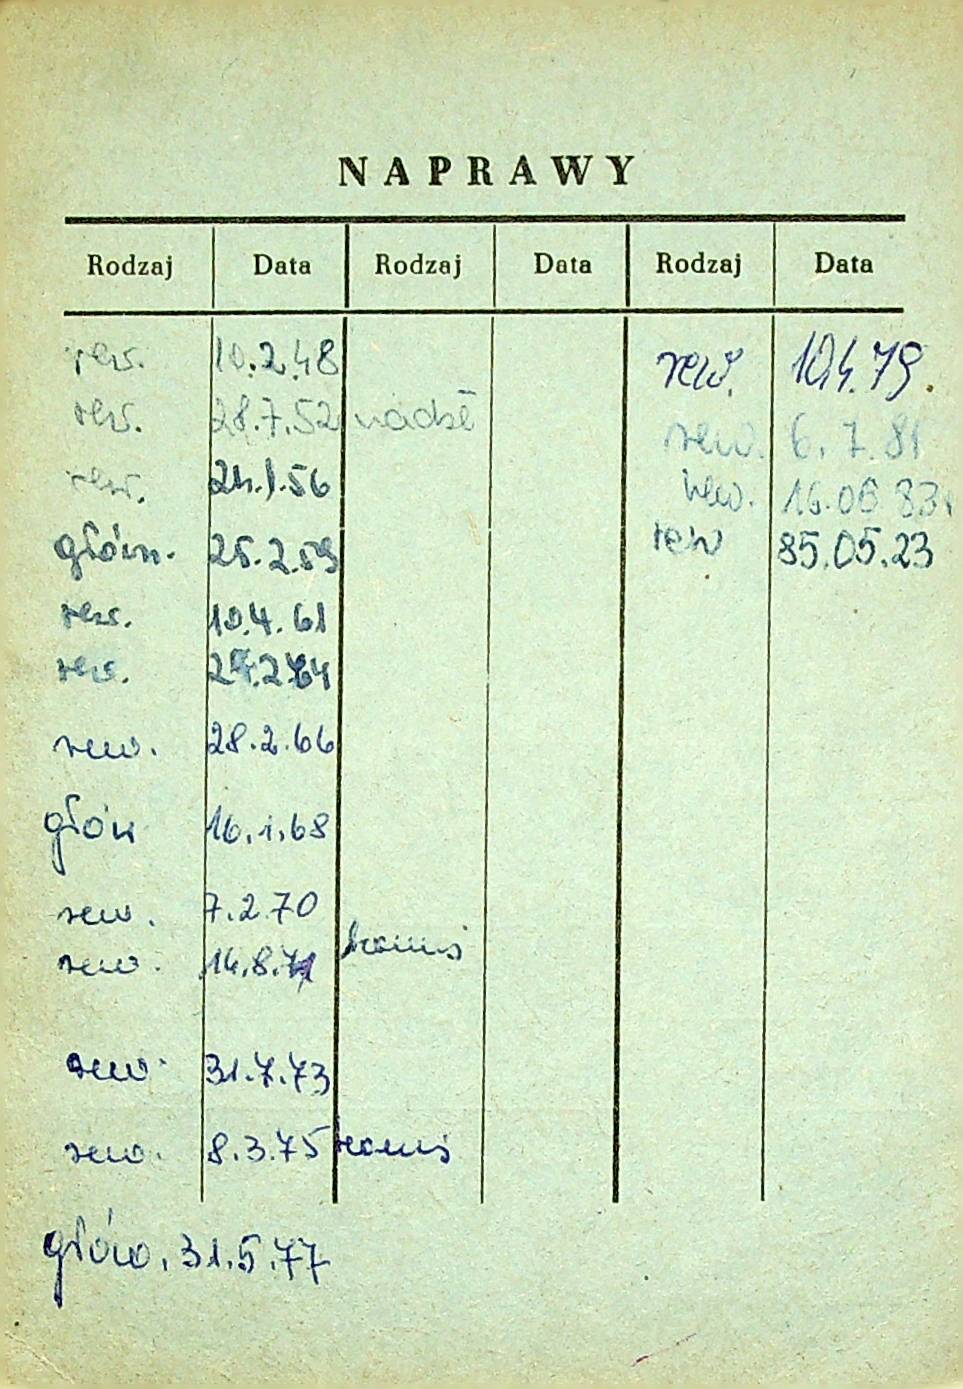 NAPRAWY
Rodzaj Data Rodzaj Data Rodzaj Data
rew. 10.2.48 rew. 10.4.79.
rew. 28.7.52 rew. 6.7.81
rew. 24.1.56 rew. 16.06 83.
główn. 25.2.59 rew 85.05.23
rew. 10.4.61
rew. 64
rew. 28.2.66
głów 16.1.68
rew. 7.2.70
rew. 14.8.71
rew. 31.7.73
rew. 8.3.75
głów. 31.5.77